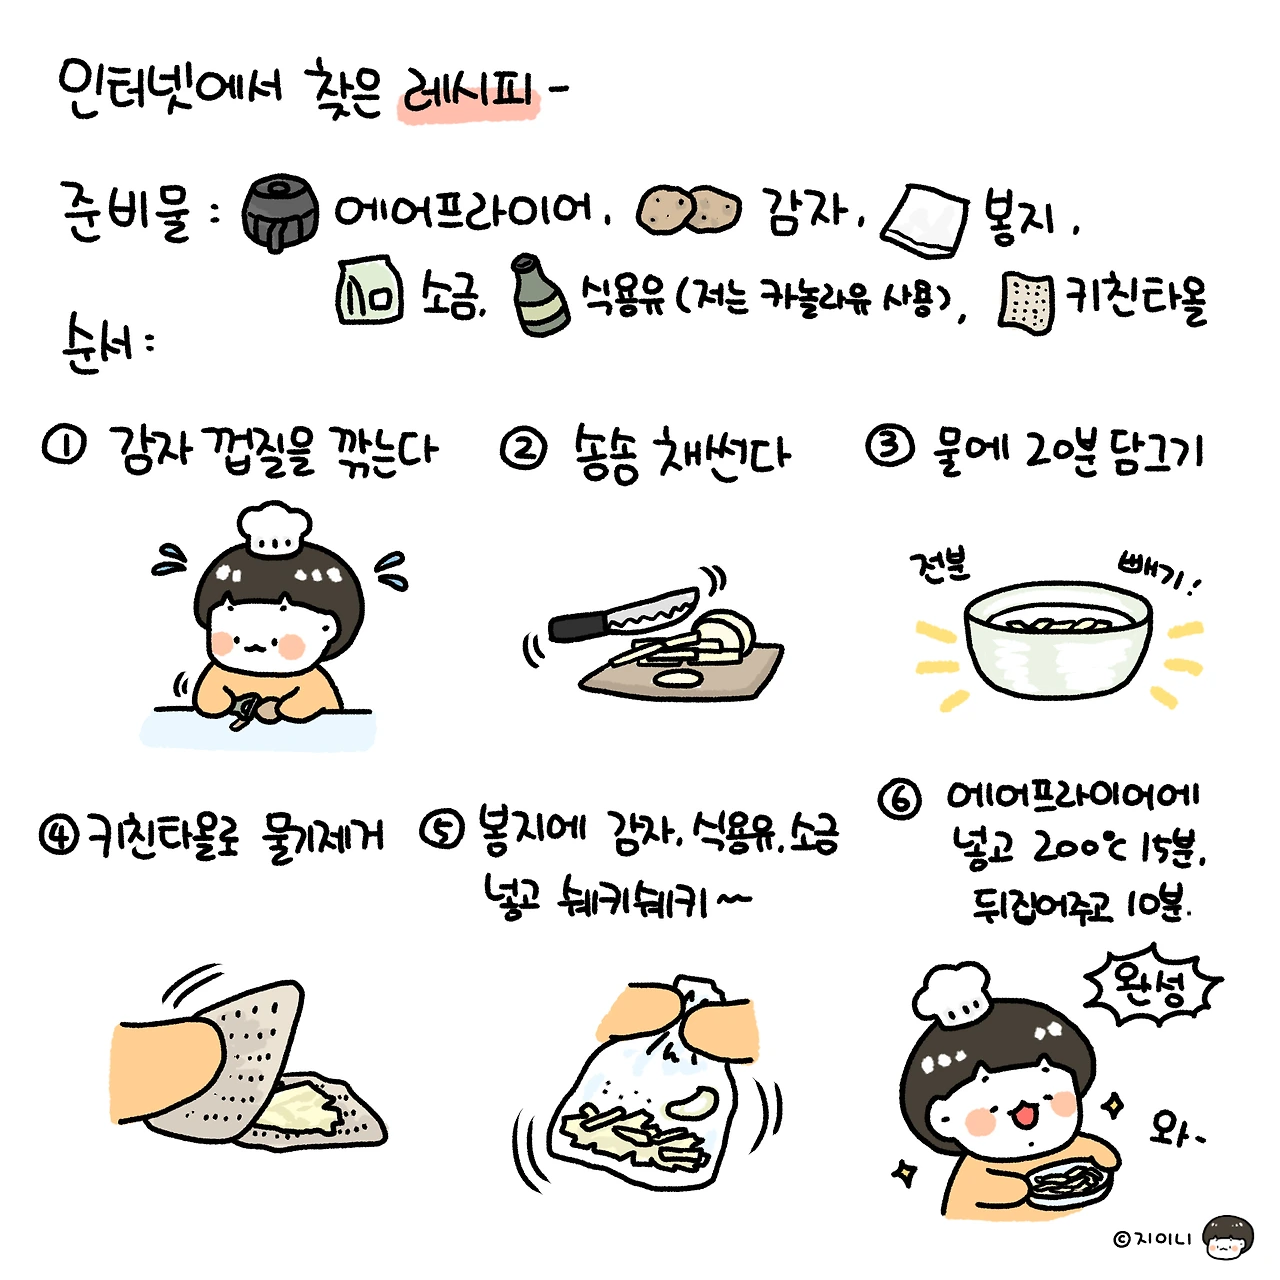 인터넷에서 찾은 레시피-
준비물 : 에어프라이어, 감자, 봉지,
소금, 식용유 (저는 카놀라유 사용), 키친타올
순서 :
① 감자 껍질을 깎는다
② 송송 채썬다
③ 물에 20분 담그기
전분 빼기!
④ 키친타올로 물기제거
⑤ 봉지에 감자, 식용유, 소금
넣고 쉐키쉐키~
⑥ 에어프라이어에
넣고 200℃ 15분,
뒤집어주고 10분.
완성
와-
©지이니